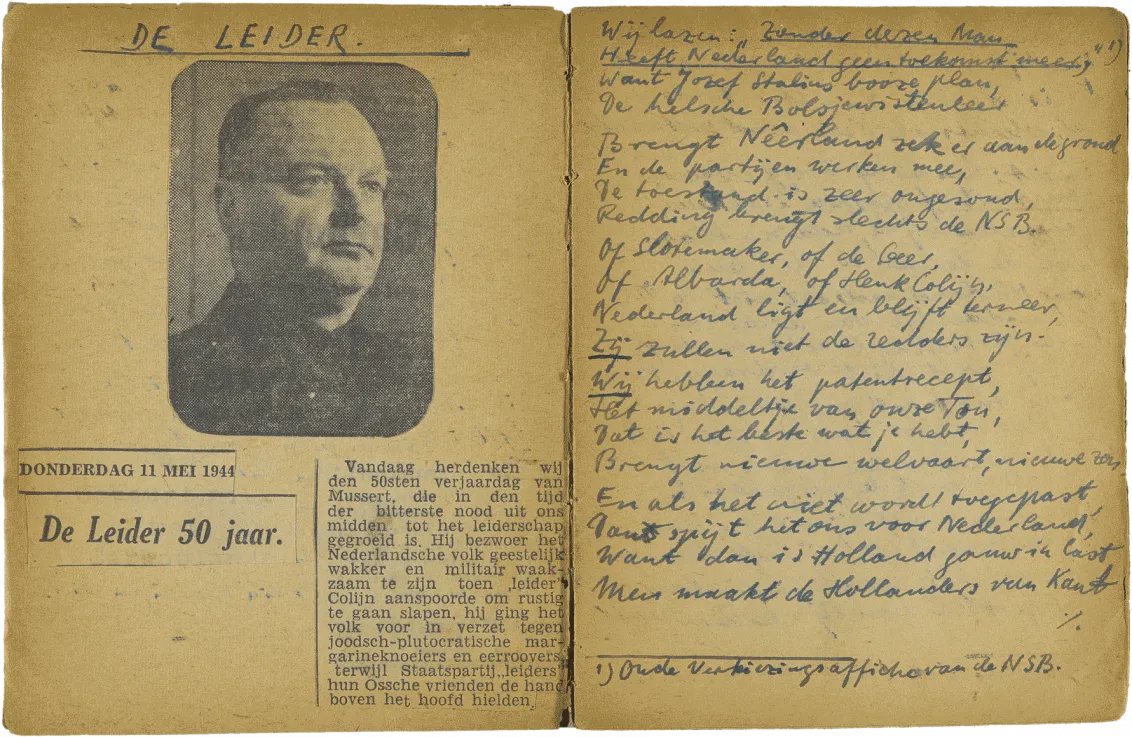 DE LEIDER.
DONDERDAG 11 MEI 1944
De Leider 50 jaar.
Vandaag herdenken wij
den 50sten verjaardag van
Mussert, die in den tijd
der bitterste nood uit ons
midden tot het leiderschap
gegroeid is. Hij bezwoer het
Nederlandsche volk geestelijk
wakker en militair waak-
zaam te zijn toen „leider”
Colijn aanspoorde om rustig
te gaan slapen, hij ging het
volk voor in verzet tegen
joodsch-plutocratische mar-
garineknoeiers en eerroovers
terwijl Staatspartij„leiders”
hun Ossche vrienden de hand
boven het hoofd hielden.
Wij lazen: „Zonder dezen Man
Heeft Nederland geen toekomst meer," 1)
Want Jozef Stalins booze plan,
De helsche Bolsjewistenleer
Brengt Nêerland zeker aan de grond
En de partijen werken mee,
De toestand is zeer ongezond,
Redding brengt slechts de NSB.
Of Slotemaker, of de Geer,
Of Albarda, of Henk Colijn,
Nederland ligt en blijft terneer,
Zij zullen niet de redders zijn.
Wij hebben het patentrecept,
Het middeltje van onze Ton,
Dat is het beste wat je hebt,
Brengt nieuwe welvaart, nieuwe zon
En als het niet wordt toegepast,
Dant spijt het ons voor Nederland,
Want dan is Holland gauw in last
Men maakt de Hollanders van Kant
1) Oude Verkiezingsaffiche van de NSB.